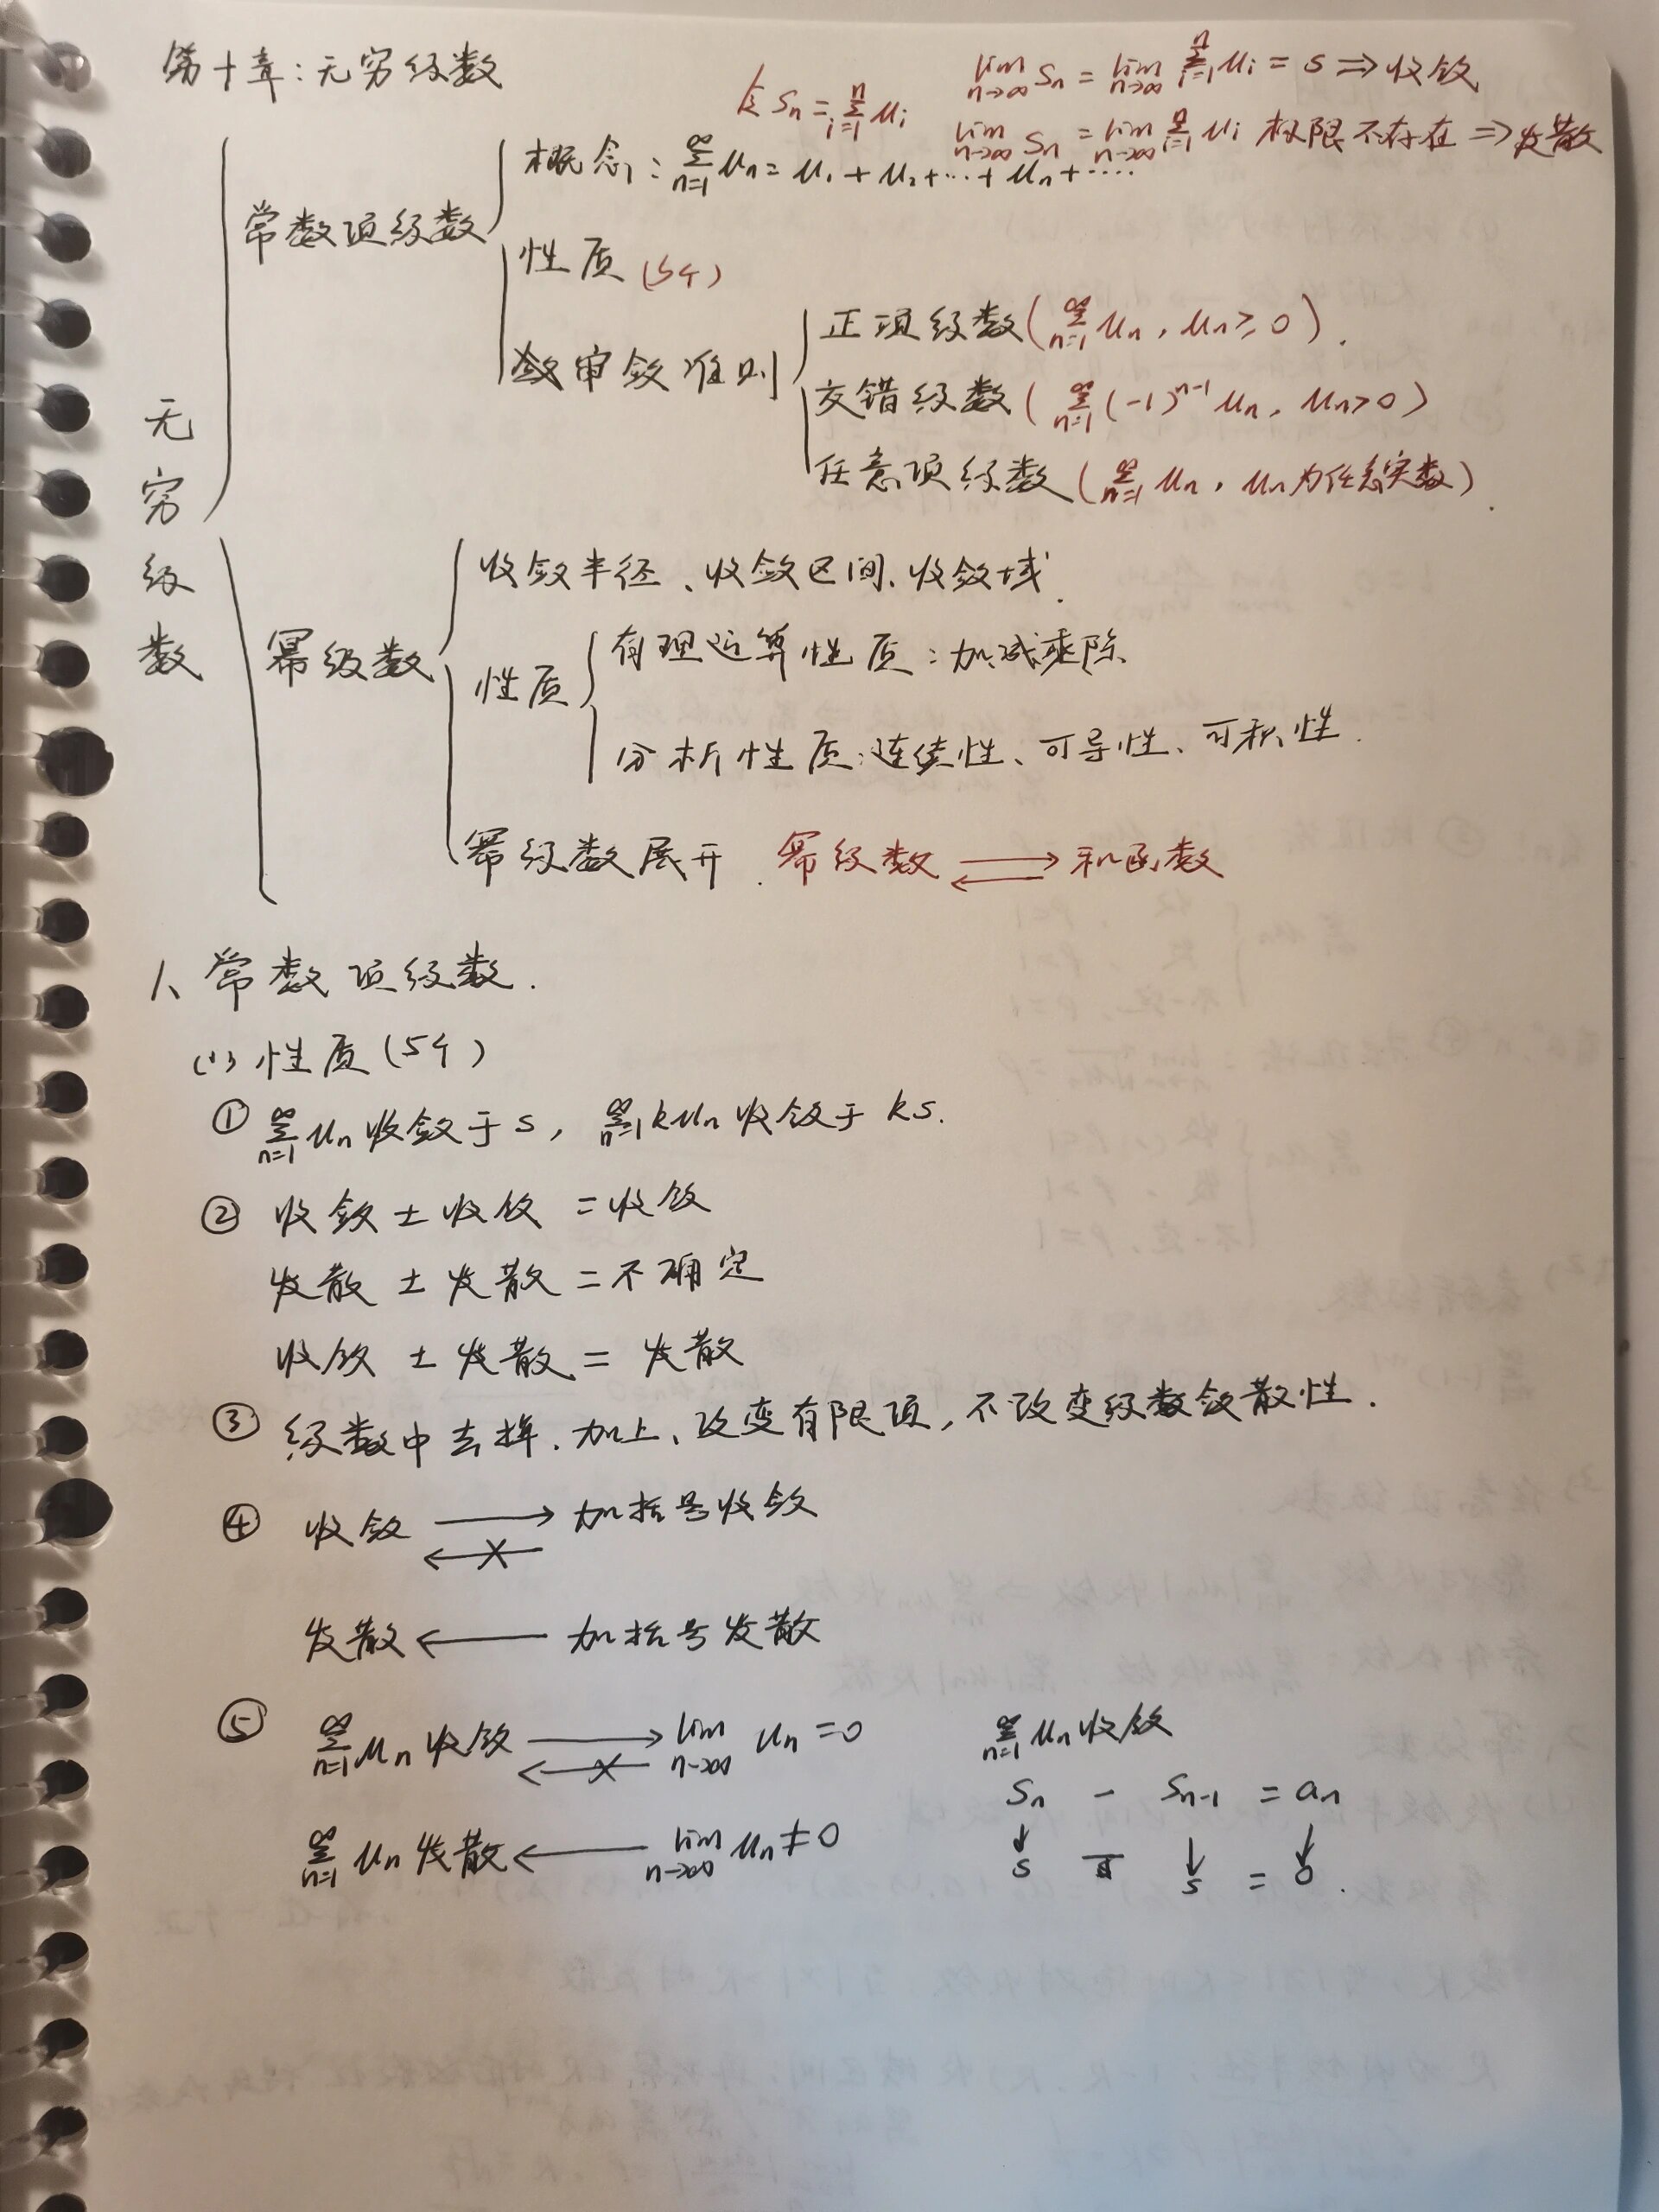 第十章:无穷级数
令 Sn = ∑_{i=1}^{n} ui
lim_{n→∞} Sn = lim_{n→∞} ∑_{i=1}^{n} ui = s ⇒ 收敛
lim_{n→∞} Sn = lim_{n→∞} ∑_{i=1}^{n} ui 极限不存在 ⇒ 发散
无穷级数
常数项级数
概念:∑_{n=1}^{∞} un = u1 + u2 + ··· + un + ····
性质(5个)
审敛准则
正项级数(∑_{n=1}^{∞} un, un ≥ 0).
交错级数(∑_{n=1}^{∞} (-1)^{n-1} un, un > 0)
任意项级数(∑_{n=1}^{∞} un, un为任意实数).
幂级数
收敛半径、收敛区间、收敛域.
性质
有理运算性质:加减乘除
分析性质:连续性、可导性、可积性.
幂级数展开. 幂级数 ⇄ 和函数
1、常数项级数.
(1) 性质(5个)
① ∑_{n=1}^{∞} un 收敛于 s, ∑_{n=1}^{∞} kun 收敛于 ks.
② 收敛 ± 收敛 = 收敛
发散 ± 发散 = 不确定
收敛 ± 发散 = 发散
③ 级数中去掉、加上、改变有限项,不改变级数敛散性.
④ 收敛 → 加括号收敛
← ×
发散 ← 加括号发散
⑤ ∑_{n=1}^{∞} un 收敛 → lim_{n→∞} un = 0
← ×
∑_{n=1}^{∞} un 发散 ← lim_{n→∞} un ≠ 0
∑_{n=1}^{∞} un 收敛
Sn - Sn-1 = an
↓ ↓ ↓
s - s = 0.